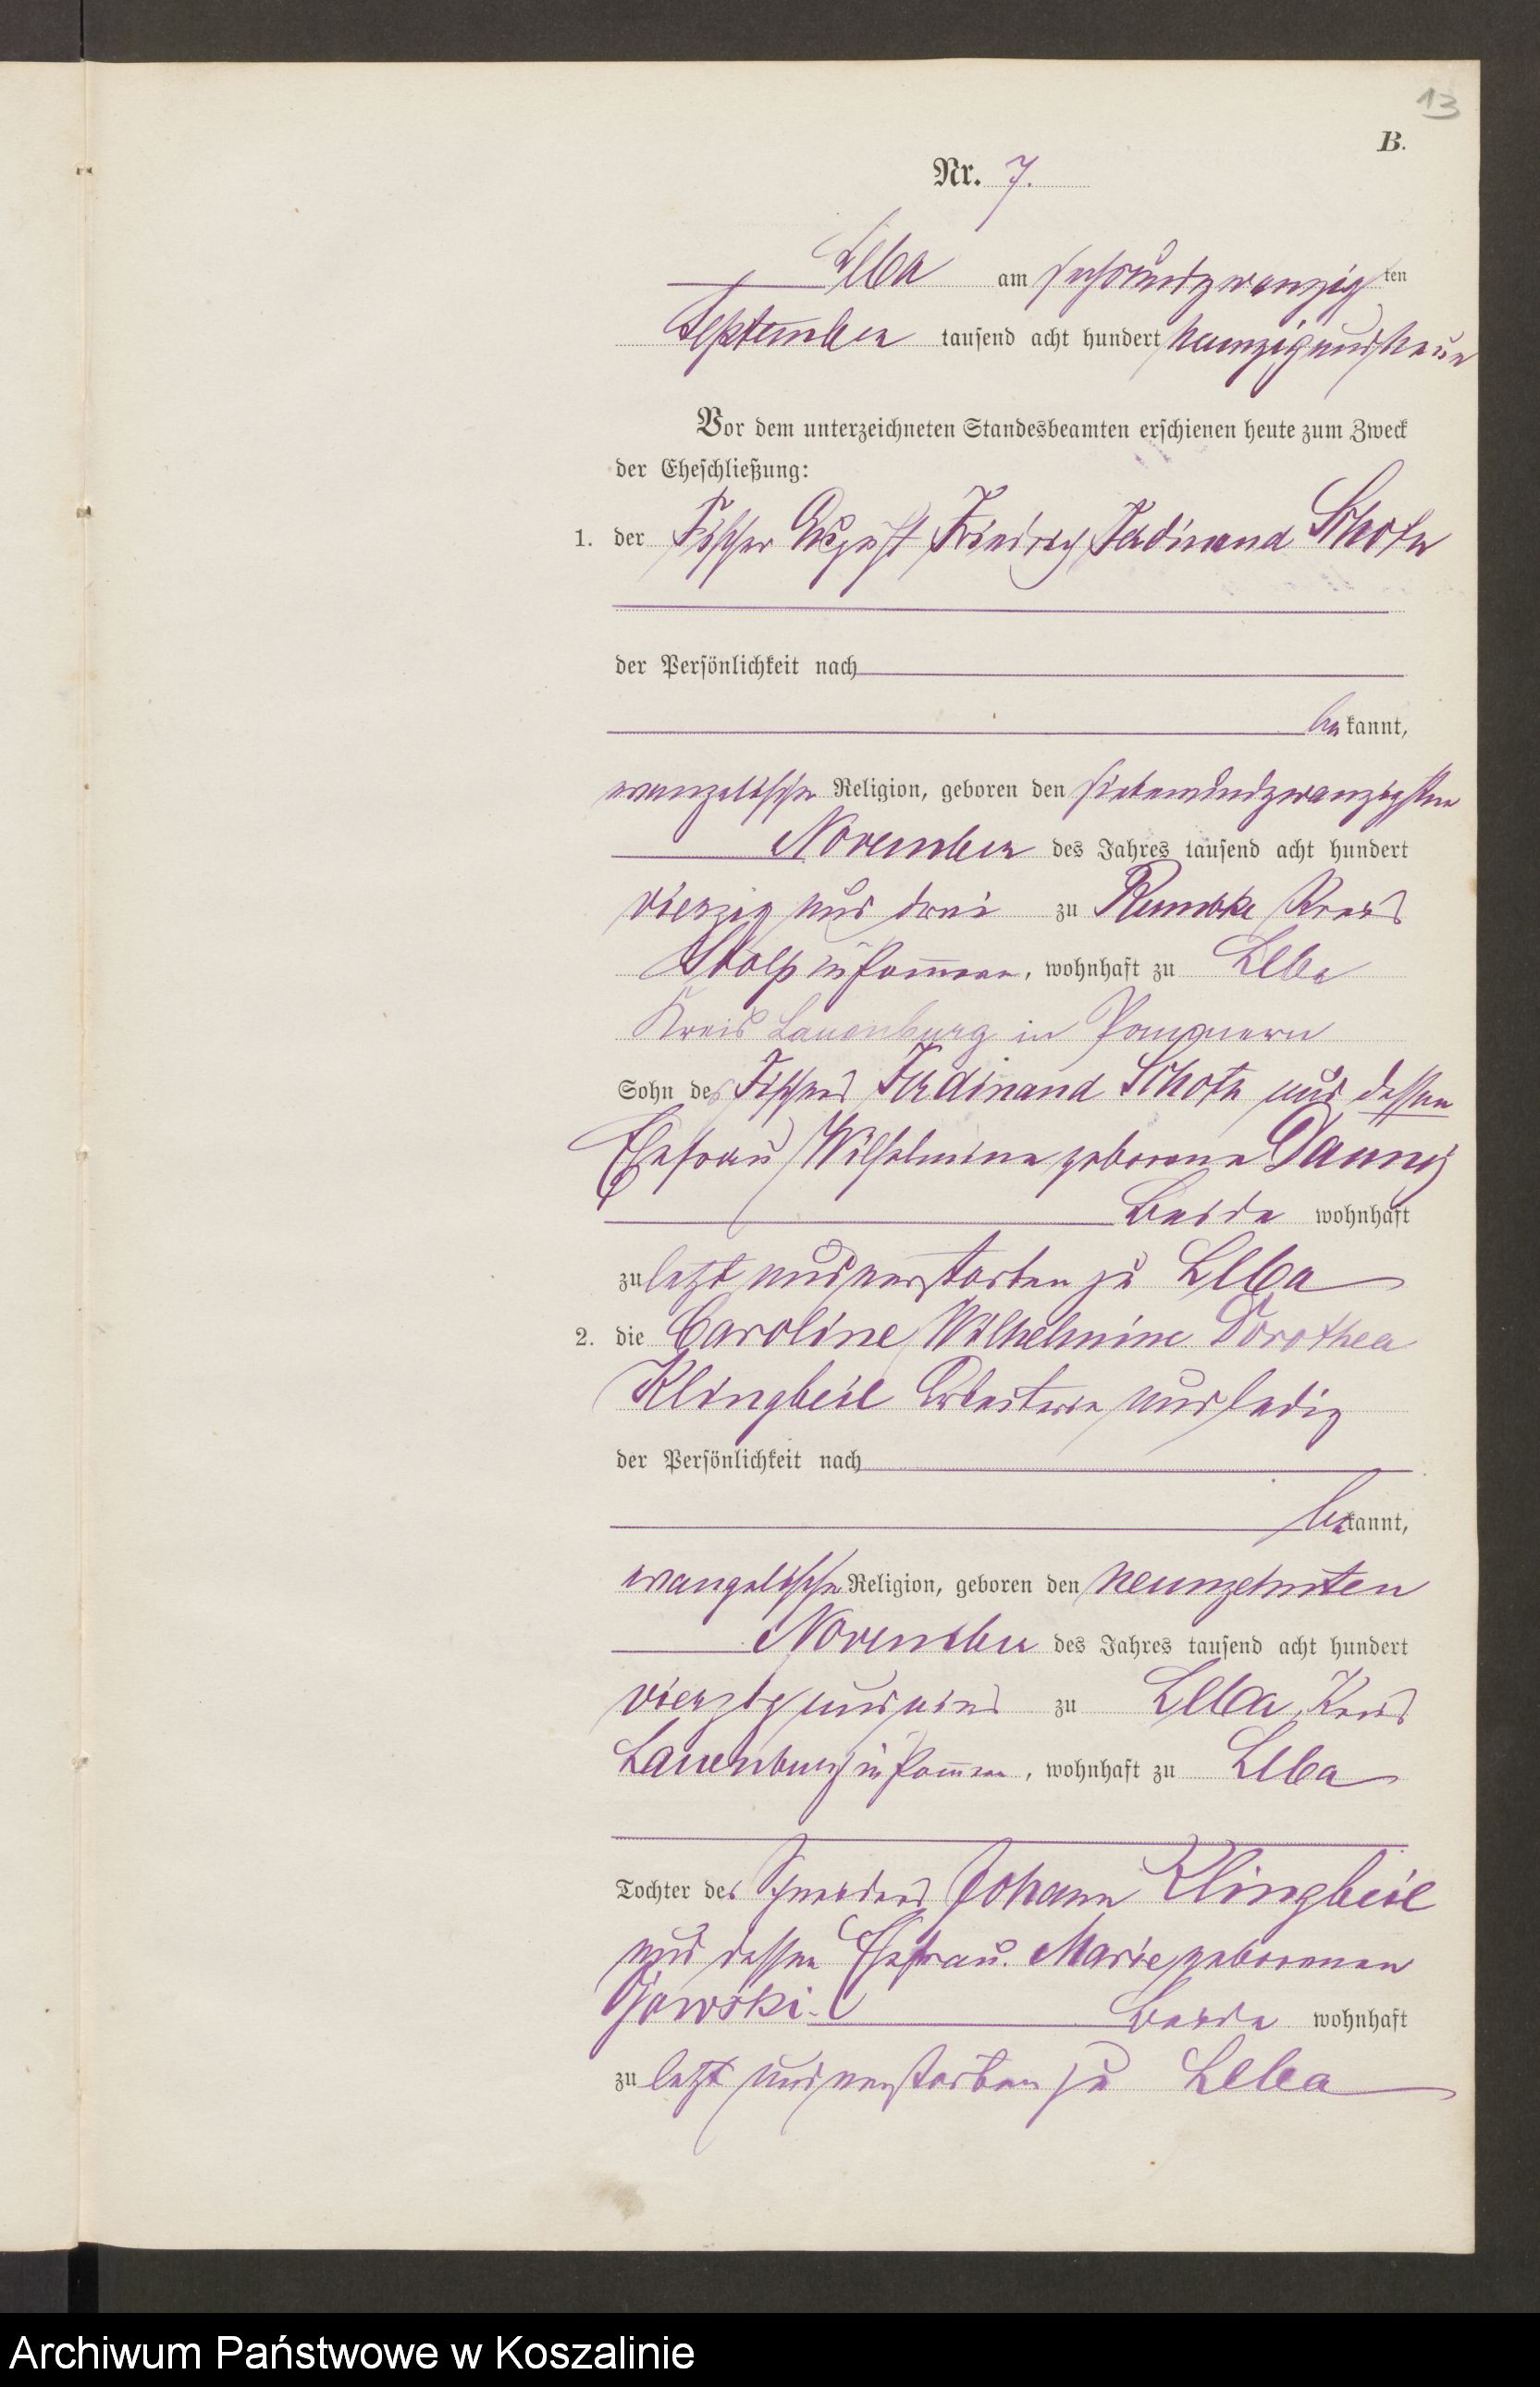 13
B.
Nr. 7.
Leba am sechsundzwanzigten
September tausend acht hundert neunzig und neun
Vor dem unterzeichneten Standesbeamten erschienen heute zum Zweck
der Eheschließung:
1. der Fischer August Friedrich Ferdinand Schote
der Persönlichkeit nach
bekannt,
evangelischer Religion, geboren den siebenundzwanzigsten
November des Jahres tausend acht hundert
vierzig und drei zu Rumbke Kreis
Stolp in Pommern, wohnhaft zu Leba
Kreis Lauenburg in Pommern
Sohn des Fischers Ferdinand Schote und dessen
Ehefrau Wilhelmine geborene
beide wohnhaft
zuletzt und verstorben zu Leba
2. die Caroline Wilhelmine Dorothea
Klingbeil Arbeiterin und ledig
der Persönlichkeit nach
bekannt,
evangelischer Religion, geboren den neunzehnten
November des Jahres tausend acht hundert
vierzig und eins zu Leba, Kreis
Lauenburg in Pommern, wohnhaft zu Leba
Tochter des Schneiders Johann Klingbeil
und dessen Ehefrau Marie geborenen
beide wohnhaft
zuletzt und verstorben zu Leba
Archiwum Państwowe w Koszalinie